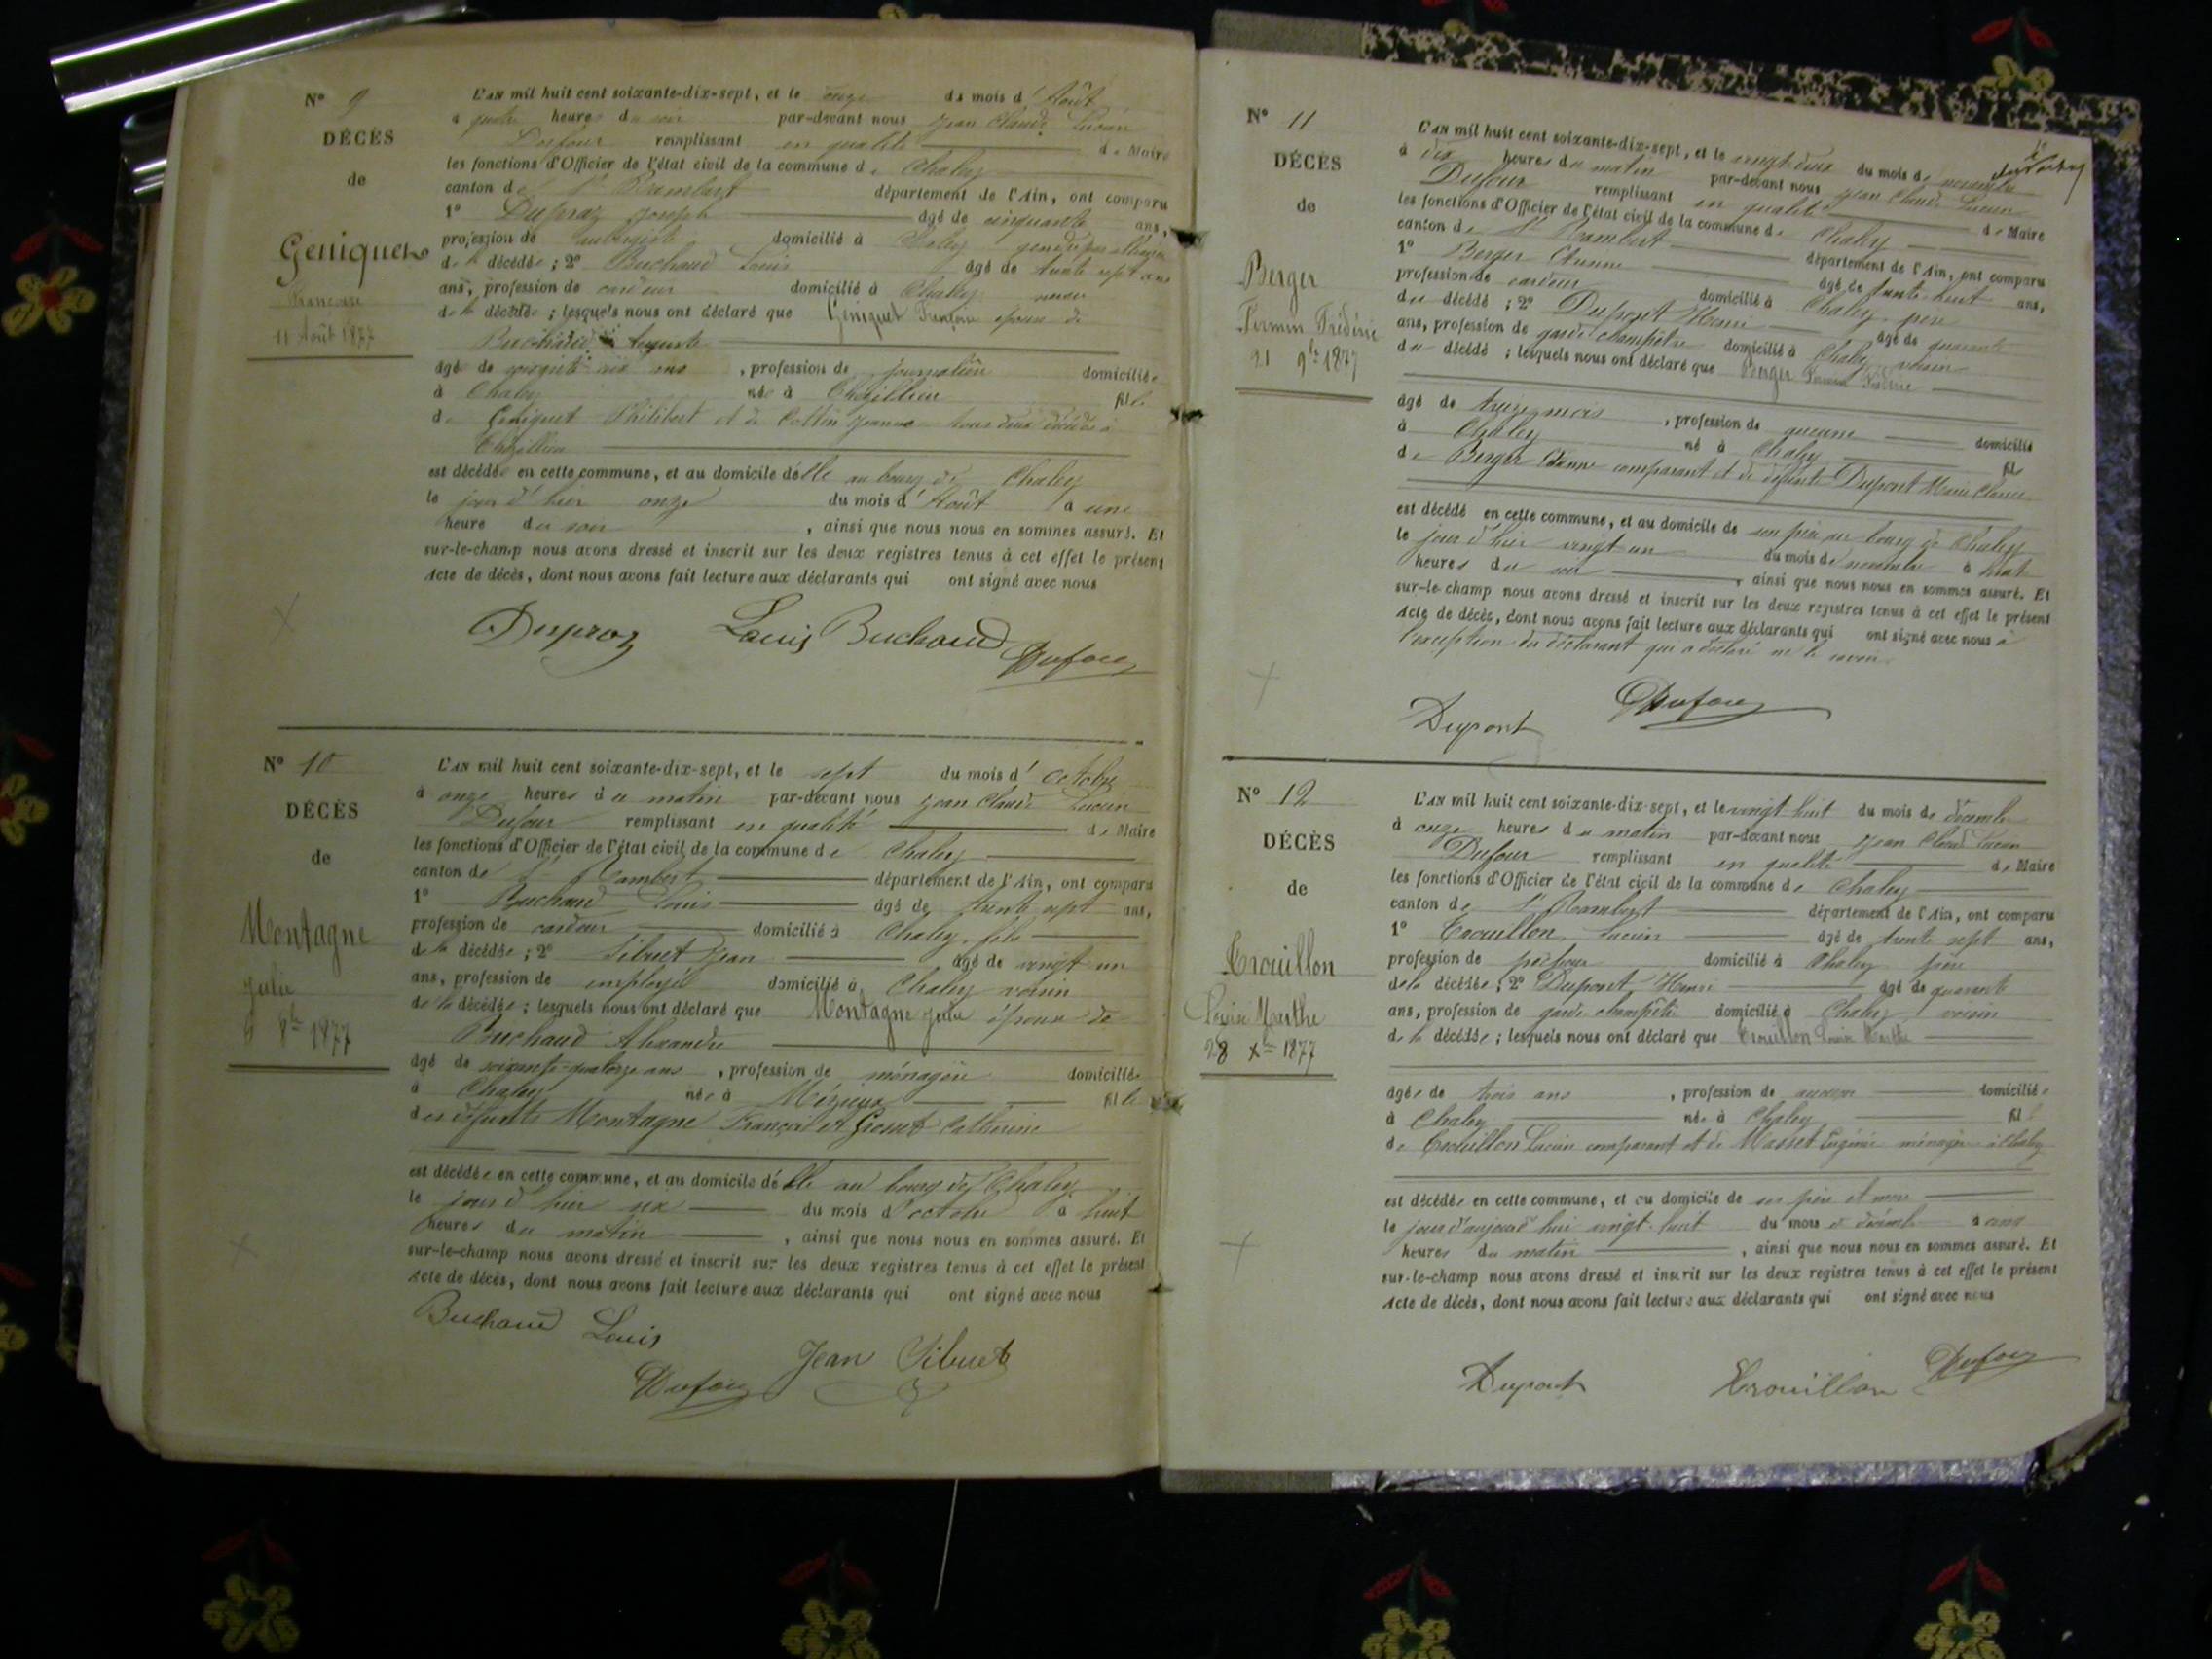 N° 9
DÉCÈS
de
Geniquet
Françoise
11 Août 1877
L'AN mil huit cent soixante-dix-sept, et le onze du mois d'Août
à quatre heures du soir par-devant nous Jean Claude Lucien
Dufour remplissant en qualité de Maire
les fonctions d'Officier de l'état civil de la commune de Chaley
canton de St Rambert département de l'Ain, ont comparu
1° Dupraz Joseph âgé de cinquante ans,
profession de aubergiste domicilié à Chaley
de la décédée ; 2° Buchaud Louis âgé de trente sept ans
ans, profession de cardeur domicilié à Chaley neveu
de la décédée ; lesquels nous ont déclaré que Geniquet Françoise épouse de
Buchaud Auguste
âgé de soixante six ans , profession de journalière domiciliée
à Chaley née à Chezillieu fille
de Geniquet Philibert et de Collin Jeanne tous deux décédés à
Chezillieu
est décédée en cette commune, et au domicile d'elle au bourg de Chaley
le jour d'hier onze du mois d'Août à une
heure du soir , ainsi que nous nous en sommes assuré. Et
sur-le-champ nous avons dressé et inscrit sur les deux registres tenus à cet effet le présent
Acte de décès, dont nous avons fait lecture aux déclarants qui ont signé avec nous
Dupraz Louis Buchaud Dufour
N° 10
DÉCÈS
de
Montagne
Julie
6 8bre 1877
L'AN mil huit cent soixante-dix-sept, et le sept du mois d'octobre
à onze heures du matin par-devant nous Jean Claude Lucien
Dufour remplissant en qualité de Maire
les fonctions d'Officier de l'état civil de la commune de Chaley
canton de St Rambert département de l'Ain, ont comparu
1° Buchaud Louis âgé de trente sept ans,
profession de cardeur domicilié à Chaley fils
de la décédée ; 2° Sibuet Jean âgé de vingt un
ans, profession de employé domicilié à Chaley voisin
de la décédée ; lesquels nous ont déclaré que Montagne Julie épouse de
Buchaud Alexandre
âgé de soixante-quatorze ans , profession de ménagère domiciliée
à Chaley née à Mézieux fille
des défunts Montagne François et Catherine
est décédée en cette commune, et au domicile d'elle au bourg de Chaley
le jour d'hier six du mois d'octobre à huit
heures du matin , ainsi que nous nous en sommes assuré. Et
sur-le-champ nous avons dressé et inscrit sur les deux registres tenus à cet effet le présent
Acte de décès, dont nous avons fait lecture aux déclarants qui ont signé avec nous
Buchaud Louis
Jean Sibuet
Dufour
N° 11
DÉCÈS
de
Berger
Firmin Frédéric
21 9bre 1877
L'AN mil huit cent soixante-dix-sept, et le vingt deux du mois de novembre
à dix heures du matin par-devant nous Jean Claude Lucien
Dufour remplissant en qualité de Maire
les fonctions d'Officier de l'état civil de la commune de Chaley
canton de St Rambert département de l'Ain, ont comparu
1° Berger Etienne âgé de trente huit ans,
profession de cardeur domicilié à Chaley père
du décédé ; 2° Dupont Henri âgé de quarante
ans, profession de garde champêtre domicilié à Chaley voisin
du décédé ; lesquels nous ont déclaré que Berger Firmin Frédéric
âgé de treize mois , profession de aucune domicilié
à Chaley né à Chaley fils
de Berger Etienne comparant et de défunte Dupont Marie
est décédé en cette commune, et au domicile de son père au bourg de Chaley
le jour d'hier vingt un du mois de novembre à huit
heures du soir , ainsi que nous nous en sommes assuré. Et
sur-le-champ nous avons dressé et inscrit sur les deux registres tenus à cet effet le présent
Acte de décès, dont nous avons fait lecture aux déclarants qui ont signé avec nous à
l'exception du déclarant qui a déclaré ne le savoir
Dupont Dufour
N° 12
DÉCÈS
de
Trouillon
Louise Marthe
28 Xbre 1877
L'AN mil huit cent soixante-dix-sept, et le vingt huit du mois de décembre
à onze heures du matin par-devant nous Jean Claude Lucien
Dufour remplissant en qualité de Maire
les fonctions d'Officier de l'état civil de la commune de Chaley
canton de St Rambert département de l'Ain, ont comparu
1° Trouillon Lucien âgé de trente sept ans,
profession de pêcheur domicilié à Chaley père
de la décédée ; 2° Dupont Henri âgé de quarante
ans, profession de garde champêtre domicilié à Chaley voisin
de la décédée ; lesquels nous ont déclaré que Trouillon Louise Marthe
âgée de trois ans , profession de aucune domiciliée
à Chaley née à Chaley fille
de Trouillon Lucien comparant et de Masset Eugénie ménagère à Chaley
est décédée en cette commune, et au domicile de ses père et mère
le jour d'aujourd'hui vingt huit du mois de décembre à
heures du matin , ainsi que nous nous en sommes assuré. Et
sur-le-champ nous avons dressé et inscrit sur les deux registres tenus à cet effet le présent
Acte de décès, dont nous avons fait lecture aux déclarants qui ont signé avec nous
Dupont Trouillon Dufour